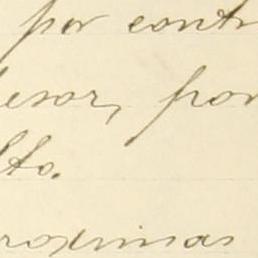 por contr
esor, por
lto.
roximas